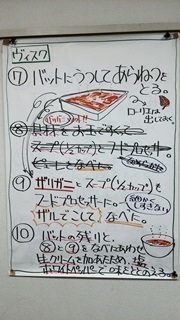 ヴィスク
⑦ バットにうつしてあらねつを
とる。
ローリエは
出しておく。
ザリガニ
⑧ 具材をお玉ですくって
スープ(1/2カップ)とフードプロセッサー
⑨ ザリガニとスープ(1/2カップ)も
フードプロセッサーに。
ザルでこして なべに。
⑩ バットの残りと、
⑧と⑨をなべにあわせ
生クリームを加えあたため、塩
ホワイトペッパーで味をととのえる。